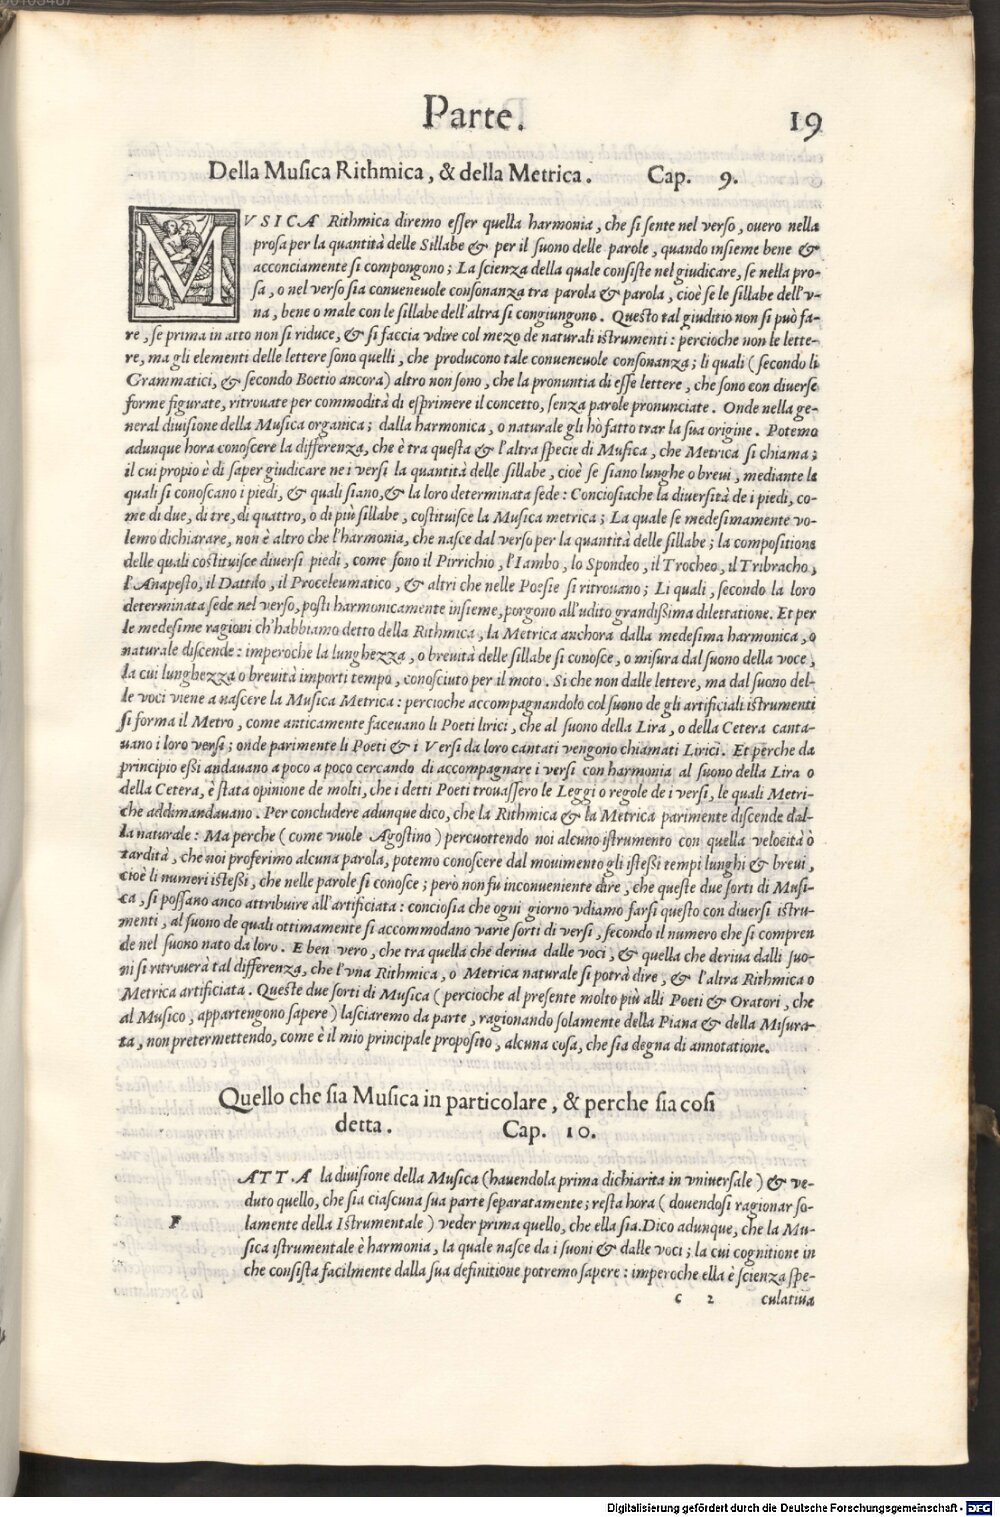 Parte. 19
Della Musica Rithmica, & della Metrica. Cap. 9.
MVSICA Rithmica diremo esser quella harmonia, che si sente nel verso, ouero nella
prosa per la quantità delle Sillabe & per il suono delle parole, quando insieme bene &
acconciamente si compongono; La scienza della quale consiste nel giudicare, se nella pro-
sa, o nel verso sia conueneuole consonanza tra parola & parola, cioè se le sillabe dell'v-
na, bene o male con le sillabe dell'altra si congiungono. Questo tal giuditio non si può fa-
re, se prima in atto non si riduce, & si faccia vdire col mezo de naturali istrumenti: percioche non le lette-
re, ma gli elementi delle lettere sono quelli, che producono tale conueneuole consonanza; li quali (secondo li
Grammatici, & secondo Boetio ancora) altro non sono, che la pronuntia di esse lettere, che sono con diuerse
forme figurate, ritrouate per commodità di esprimere il concetto, senza parole pronunciate. Onde nella ge-
neral diuisione della Musica organica; dalla harmonica, o naturale gli hò fatto trar la sua origine. Potemo
adunque hora conoscere la differenza, che è tra questa & l'altra specie di Musica, che Metrica si chiama;
il cui propio è di saper giudicare ne i versi la quantità delle sillabe, cioè se siano lunghe o breui, mediante le
quali si conoscano i piedi, & quali siano, & la loro determinata sede: Conciosiache la diuersità de i piedi, co-
me di due, di tre, di quattro, o di più sillabe, costituisce la Musica metrica; La quale se medesimamente vo-
lemo dichiarare, non è altro che l'harmonia, che nasce dal verso per la quantità delle sillabe; la compositione
delle quali costituisce diuersi piedi, come sono il Pirrichio, l'Iambo, lo Spondeo, il Trocheo, il Tribracho,
l'Anapesto, il Dattilo, il Proceleumatico, & altri che nelle Poesie si ritrouano; Li quali, secondo la loro
determinata sede nel verso, posti harmonicamente insieme, porgono all'udito grandissima dilettatione. Et per
le medesime ragioni ch'habbiamo detto della Rithmica, la Metrica anchora dalla medesima harmonica, o
naturale discende: imperoche la lunghezza, o breuità delle sillabe si conosce, o misura dal suono della voce,
la cui lunghezza o breuità importi tempo, conosciuto per il moto. Si che non dalle lettere, ma dal suono del-
le voci viene a nascere la Musica Metrica: percioche accompagnandolo col suono de gli artificiali istrumenti
si forma il Metro, come anticamente faceuano li Poeti lirici, che al suono della Lira, o della Cetera canta-
uano i loro versi; onde parimente li Poeti & i Versi da loro cantati vengono chiamati Lirici. Et perche da
principio essi andauano a poco a poco cercando di accompagnare i versi con harmonia al suono della Lira o
della Cetera, è stata opinione de molti, che i detti Poeti trouassero le Leggi o regole de i versi, le quali Metri-
che addimandauano. Per concludere adunque dico, che la Rithmica & la Metrica parimente discende dal-
la naturale: Ma perche (come vuole Agostino) percuottendo noi alcuno istrumento con quella velocità o
tardità, che noi proferimo alcuna parola, potemo conoscere dal mouimento gli istessi tempi lunghi & breui,
cioè li numeri istessi, che nelle parole si conosce; però non fu inconueniente dire, che queste due sorti di Musi-
ca, si possano anco attribuire all'artificiata: conciosia che ogni giorno vdiamo farsi questo con diuersi istru-
menti, al suono de quali ottimamente si accommodano varie sorti di versi, secondo il numero che si compren
de nel suono nato da loro. E ben vero, che tra quella che deriua dalle voci, & quella che deriua dalli suo-
ni si ritrouerà tal differenza, che l'vna Rithmica, o Metrica naturale si potrà dire, & l'altra Rithmica o
Metrica artificiata. Queste due sorti di Musica (percioche al presente molto più alli Poeti & Oratori, che
al Musico, appartengono sapere) lasciaremo da parte, ragionando solamente della Piana & della Misura-
ta, non pretermettendo, come è il mio principale proposito, alcuna cosa, che sia degna di annotatione.
Quello che sia Musica in particolare, & perche sia cosi
detta. Cap. 10.
FATTA la diuisione della Musica (hauendola prima dichiarita in vniuersale) & ve-
duto quello, che sia ciascuna sua parte separatamente; resta hora (douendosi ragionar so-
lamente della Istrumentale) veder prima quello, che ella sia. Dico adunque, che la Mu-
sica istrumentale è harmonia, la quale nasce da i suoni & dalle voci; la cui cognitione in
che consista facilmente dalla sua definitione potremo sapere: imperoche ella è scienza spe-
c 2 culatiua
Digitalisierung gefördert durch die Deutsche Forschungsgemeinschaft - DFG